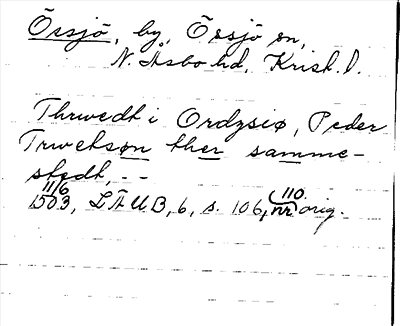 Össjö, by, Össjö sn,
N. Åsbo hd, Krist. l.
Thrwedt i Ordzsiø, Peder
Trwelsøn ther samme-
stedt, - -
11/6
1503, LÄUB, 6, s. 106, nr 110. orig.